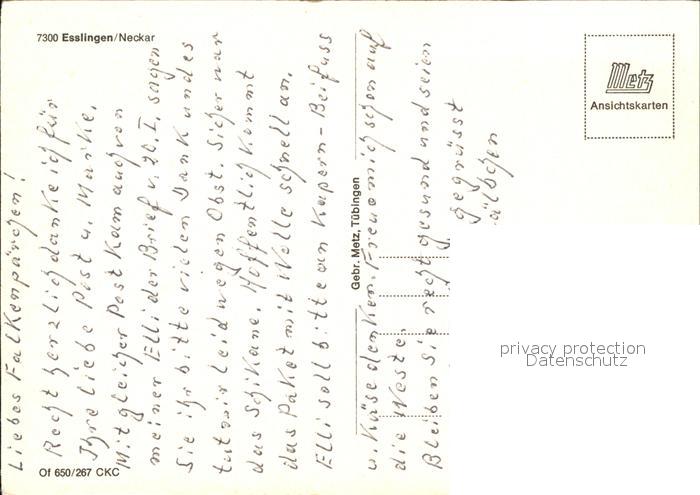 7300 Esslingen/Neckar
Metz
Ansichtskarten
Liebes Falkenpärchen!
Recht herzlich danke ich für
Ihre liebe Post u. Marke.
Mit gleicher Post kam auch von
meiner Elli der Brief v. 20. I. sagen
Sie ihr bitte vielen Dank und es
tut mir leid wegen Obst. Sicher war
das Schikane. Hoffentlich kommt
das Paket mit Wolle schnell an.
Elli soll bitte an Kapern-Beifuss
u. Käse denken. Freue mich schon auf
die Weste.
Bleiben Sie recht gesund und seien
gegrüsst
Gebr. Metz, Tübingen
Of 650/267 CKC
privacy protection
Datenschutz